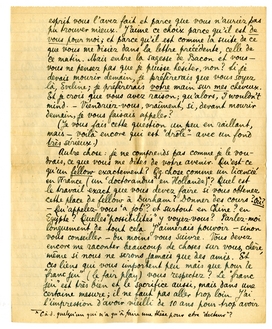 esprit vous l'avez fait et parce que vous n'auriez pas
pu trouver mieux. J'aime ce choix parce qu'il est de
vous pour moi; et parce qu'il est comme la suite de ce
que vous me disiez dans la lettre précédente, celle de
ce matin. Mais envers la sagesse de Bacon, et vous-
vous ne pensez pas que je puisse hésiter, non? Si je
devais mourir demain, je préférerais que vous soyez
là, Eveline; je préférerais votre main sur mes cheveux.
Et je crois que vous avez raison; qu'alors, I wouldn't
mind. - Viendriez-vous, vraiment, si, devant mourir
demain, je vous faisais appeler?
(Je vous fais cette question, un peu en raillant,
mais - voilà encore qui est "drôle" avec un fond
très sérieux.)
Autre chose: je ne comprends pas comme je le vou-
drais, ce que vous me dites de votre avenir. Qu'est-ce
qu'un fellow exactement? Qq chose comme un licencié
en France (un "doctorandus" en Hollande)? Quel est
le travail exact que vous devez faire si vous obtenez
cette place de fellow à Durham? Donner des cours? où?
- Qu'appelez-vous "a job" et surtout en Chine? en
Egypte? Quelles "possibilités" y voyez-vous? Parlez-moi
longuement de tout cela. J'aimerais pouvoir - sinon
vous conseiller - au moins vous suivre. Vous devez
encore me raconter beaucoup de choses sur vous, chère
même si nous ne serons jamais que des amis. Et
ces liens qui vous importent peu, mais que pour le
"franc jeu" (le fair play) vous respectez? "Le franc
jeu" est très bien et le sacrifice aussi, mais dans une
certaine mesure; il ne faut pas aller trop loin. J'ai
l'impression d'avoir vieilli de 10 ans pour trop avoir
* C.à.d. quelqu'un qui n'a qu'à faire une thèse pour être "docteur"?